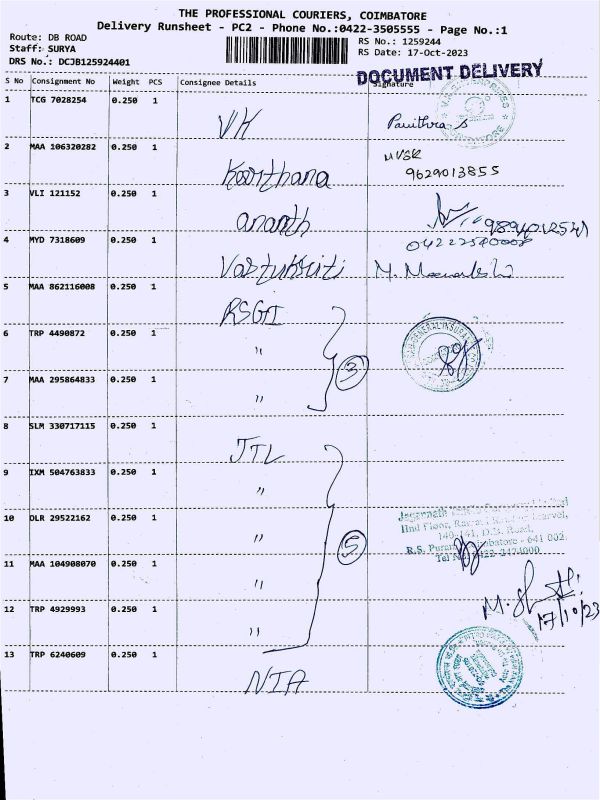 THE PROFESSIONAL COURIERS, COIMBATORE
Delivery Runsheet - PC2 - Phone No.:0422-3505555 - Page No.:1
Route: DB ROAD
Staff: SURYA
DRS No.: DCJB125924401
RS No.: 1259244
RS Date: 17-Oct-2023
DOCUMENT DELIVERY
S No Consignment No Weight PCS Consignee Details Signature
1 TCG 7028254 0.250 1 VK Pavithra s
2 MAA 106320282 0.250 1 Keerthana MVSK
9629013855
3 VLI 121152 0.250 1 ananth
4 MYD 7318609 0.250 1 Vastukriti
5 MAA 862116008 0.250 1 RSGI
6 TRP 4490872 0.250 1 "
7 MAA 295864833 0.250 1 " 3
8 SLM 330717115 0.250 1 JTL
9 IXM 504763833 0.250 1 "
10 DLR 29522162 0.250 1 "
11 MAA 104908070 0.250 1 " 5
12 TRP 4929993 0.250 1 "
17/10/23
13 TRP 6240609 0.250 1 NIA